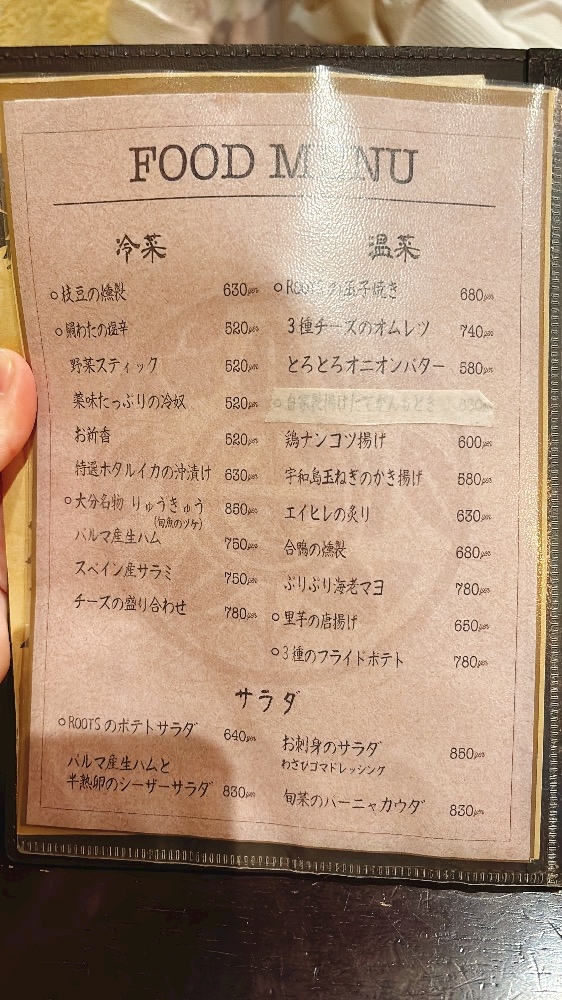 FOOD MENU
冷菜
○枝豆の燻製 630yen
○鯛わたの塩辛 520yen
野菜スティック 520yen
薬味たっぷりの冷奴 520yen
お新香 520yen
特選ホタルイカの沖漬け 630yen
○大分名物 りゅうきゅう 850yen
(旬魚のヅケ)
パルマ産生ハム 750yen
スペイン産サラミ 750yen
チーズの盛り合わせ 780yen
温菜
○ROOTSの玉子焼き 680yen
3種チーズのオムレツ 740yen
とろとろオニオンバター 580yen
○自家製揚げたて
鶏ナンコツ揚げ 600yen
宇和島玉ねぎのかき揚げ 580yen
エイヒレの炙り 630yen
合鴨の燻製 680yen
ぷりぷり海老マヨ 780yen
○里芋の唐揚げ 650yen
○3種のフライドポテト 780yen
サラダ
○ROOTSのポテトサラダ 640yen
パルマ産生ハムと
半熟卵のシーザーサラダ 830yen
お刺身のサラダ 850yen
わさびゴマドレッシング
旬菜のバーニャカウダ 830yen